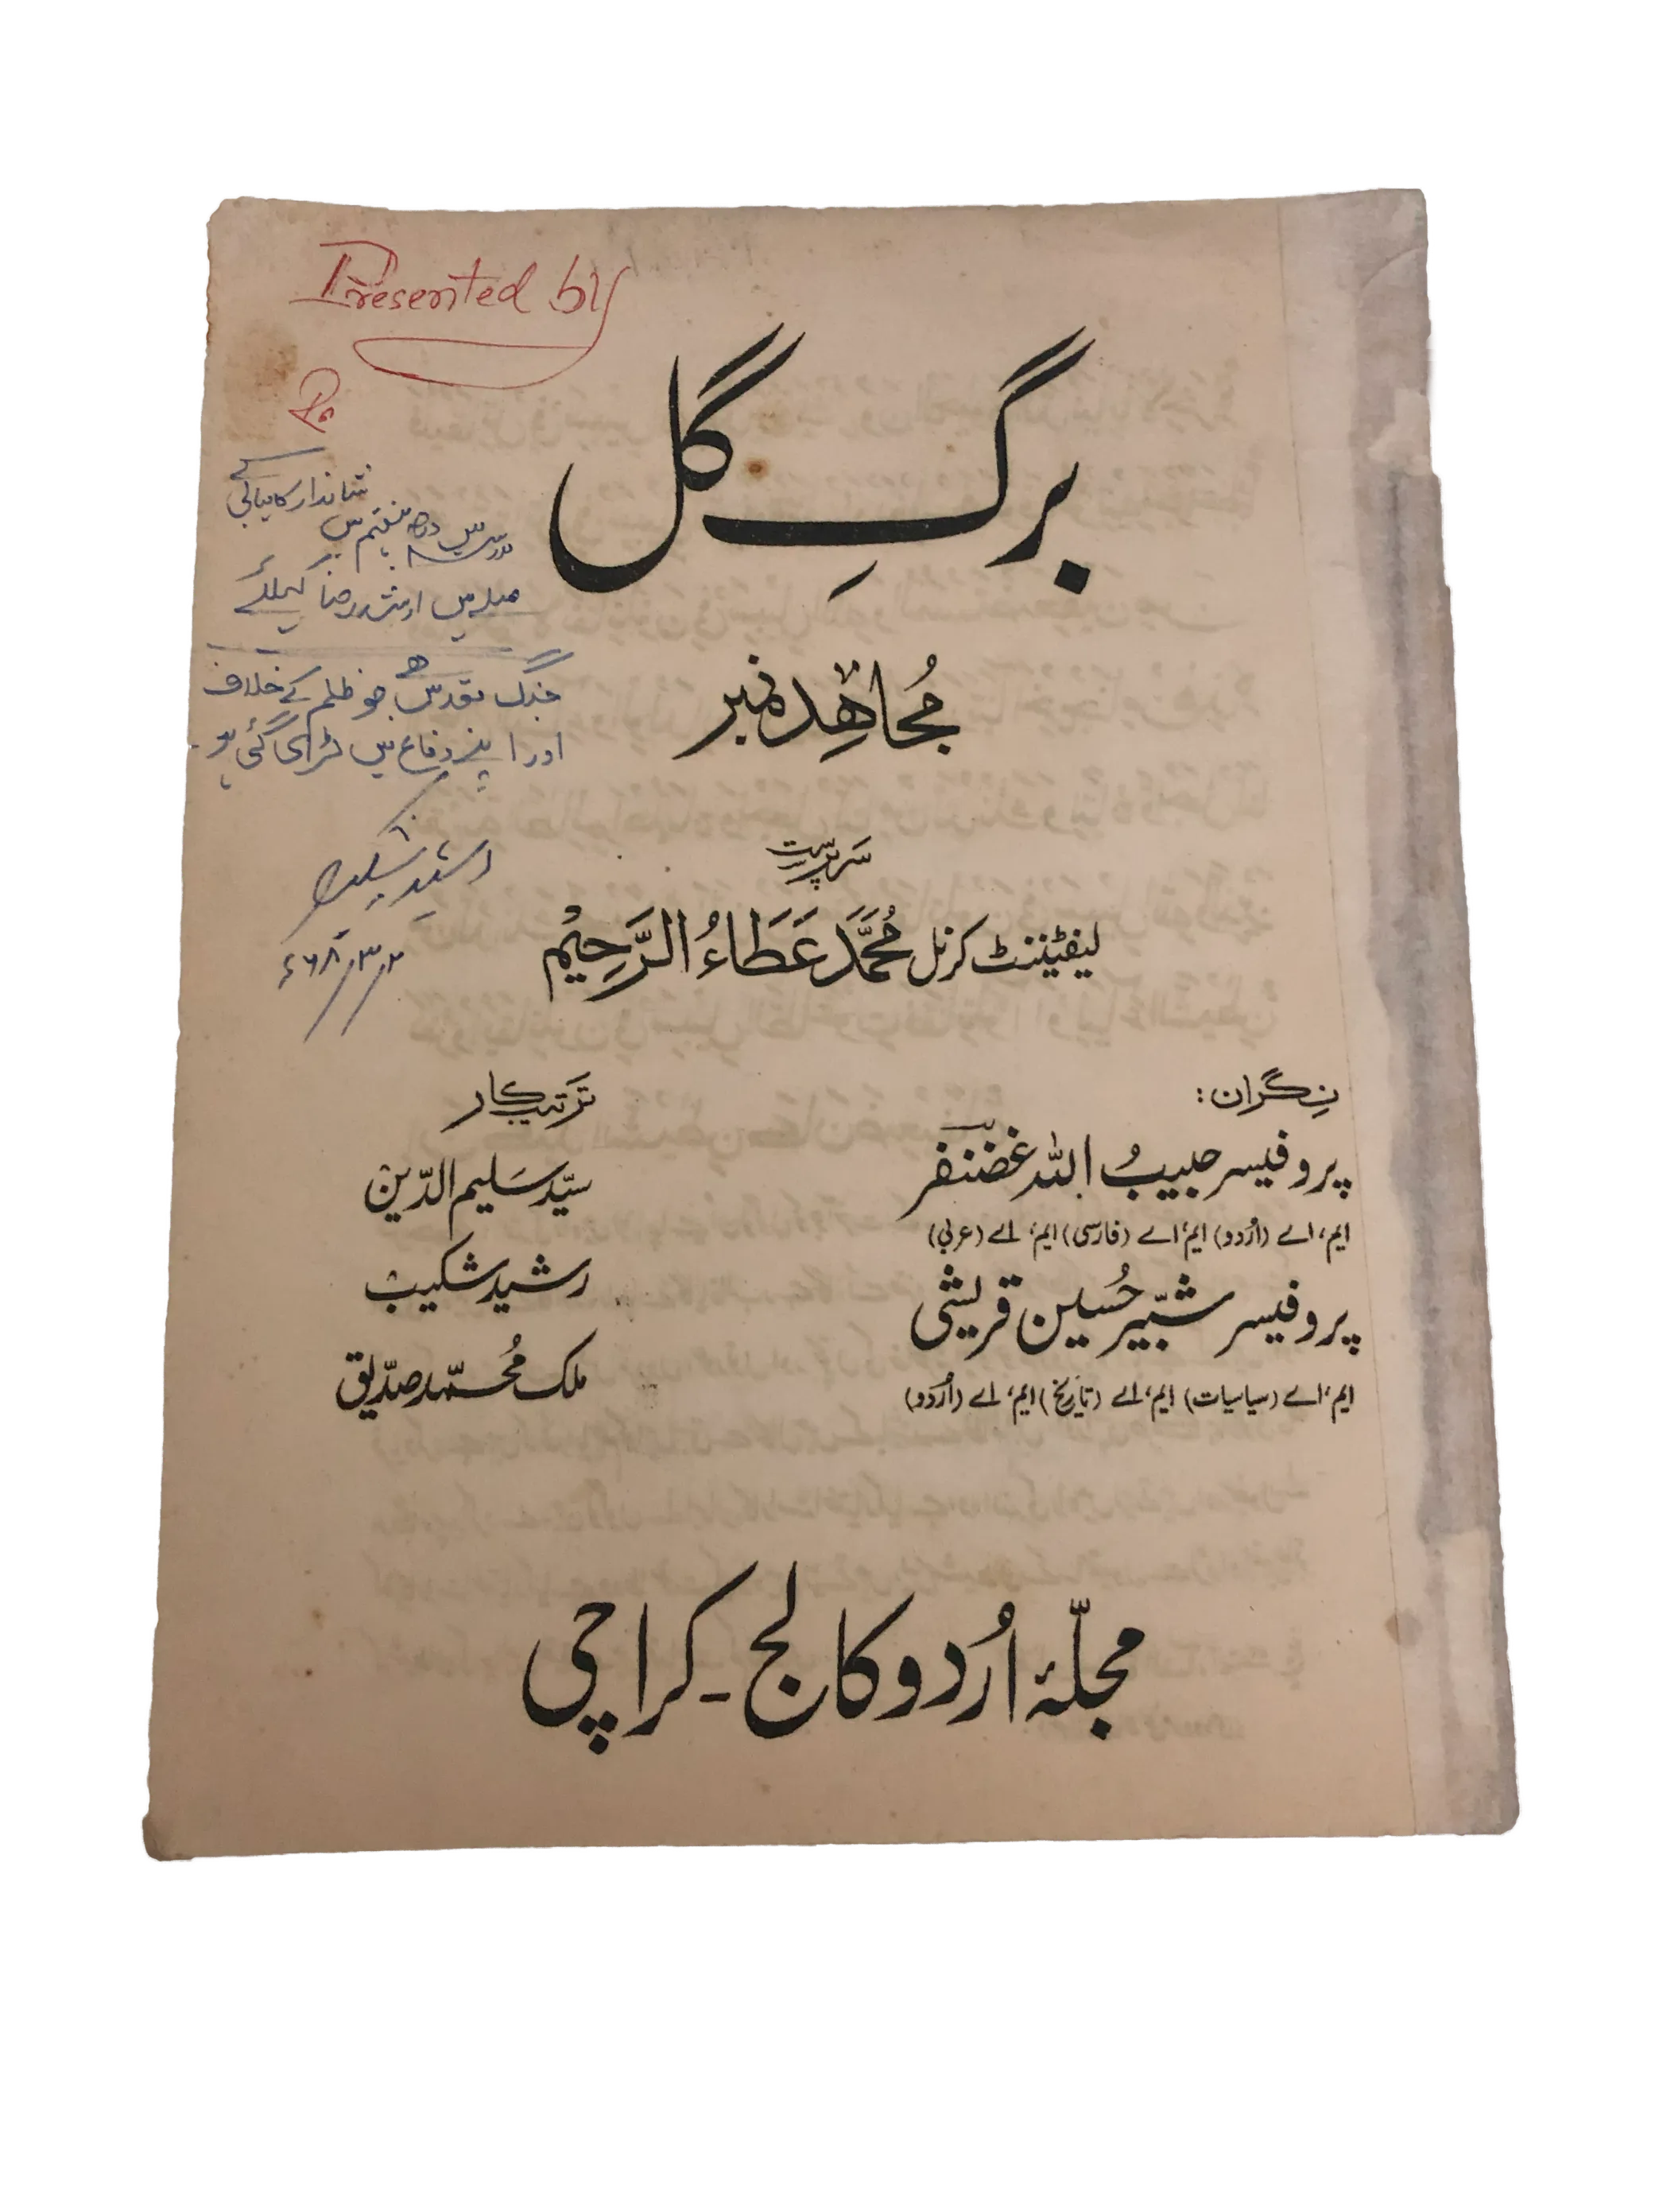 Presented by
برگِ گل
شاندار کامیابی کے
درجہ ہفتم میں
صلہ میں ارشد رضا کیلئے
مُجاھِد نمبر
جنگ مقدس ھے جو ظلم کے خلاف
اور اپنے دفاع میں لڑی گئی ہو۔
سَرپرست
رشید شکیب
لیفٹیننٹ کرنل مُحَمَّد عَطَاءُ الرَّحِیْم
۲/۳/۶۸ء
نِگران:
پروفیسر حبیبُ اللہ غضنفر
ایم، اے (اُردو) ایم، اے (فارسی) ایم، اے (عربی)
پروفیسر شبّیر حُسین قریشی
ایم، اے (سیاسیات) ایم، اے (تاریخ) ایم، اے (اُردو)
تَرتیب کار
سیّد سَلیم الدّین
رشید شکیب
ملک مُحمّد صدّیق
مجلّۂ اُردو کالج - کراچی